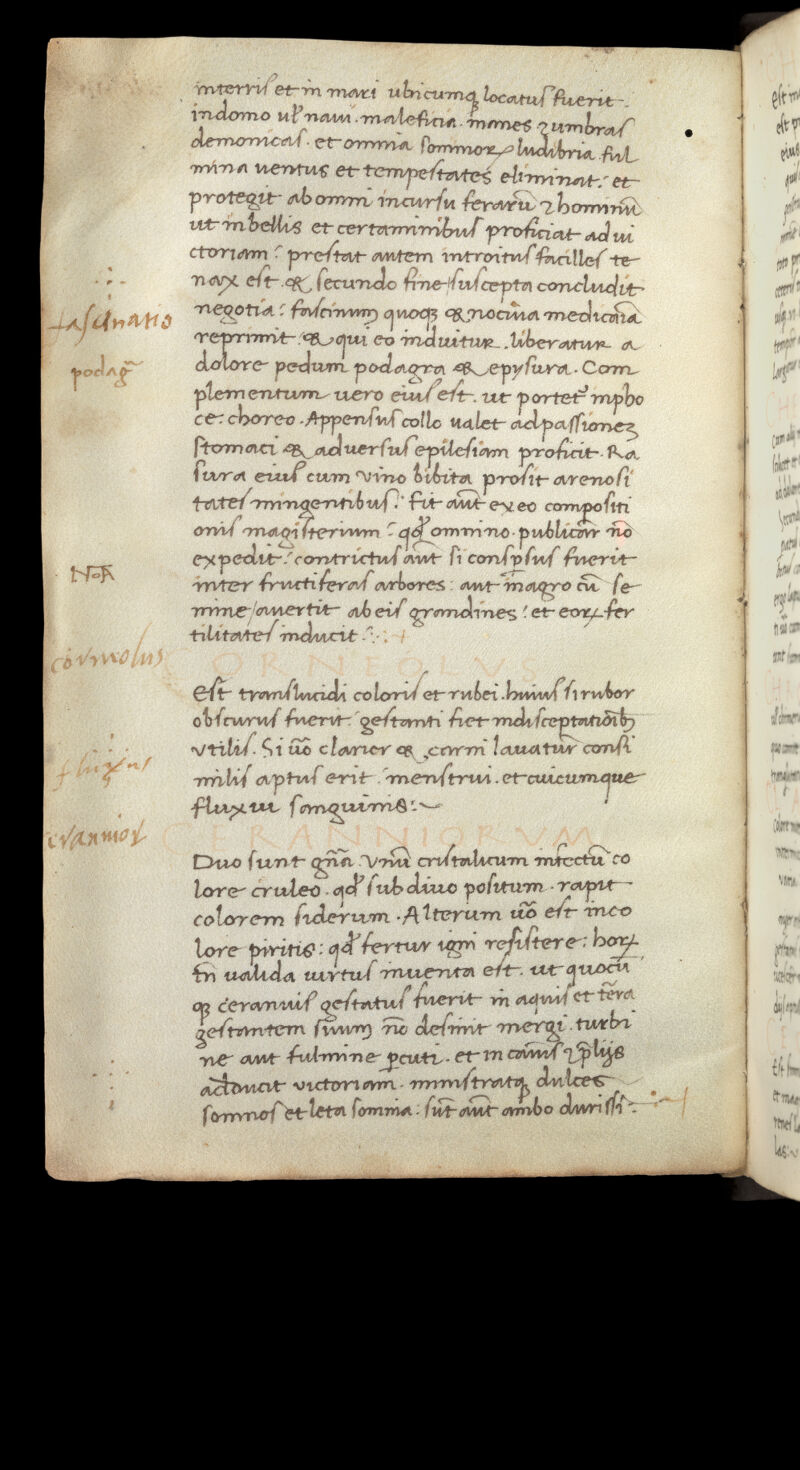 interris et in mari ubicumq; locatus fuerit.
indomo ul' naui. maleficia. manes ⁊ umbras
demonicas. et omnia somnioꝝ ludibria. ful
mina uentus et tempestates eliminat: et
protegit ab omni incursu ferarū ⁊ hominū
ut in bellis et certaminibus proficiat ad ui
ctoriam: prestat autem introitus facilles te
nax est. & secundo fine suscepta concludit
negotia: fascinum quoq; & nociua medicaīa
fascinatio
reprimit. & qui eo induitur. liberatur a
dolore pedum podagra & epysura. Com
podag̃
plementum uero eius est. ut portet' in pho
ce choreo. Appensus collo ualet ad passionez
stomaci & aduersus epilesiam proficit. Ra
sura eius cum vino bibita prosit arenosi
tates mingentibus: fit aūt ex eo compositi
onis magisterium: qd' omnino. publicar nō
expedit: contrictus aūt si conspsus fuerit
Noā
inter fructiferas arbores: aut inagro cū se
mine / auertit ab eis grandines: et eoꝝ fer
tilitates inducit:
CORNEOLVS
cornnolus
Est translucidi coloris et rubei. huius si rubor
obscurus fuerit: gestanti fiet indisceptatiōib;
vtilis. Si ūo clarior & carni lauatur consi
milis aptus erit. menstrui. et cuicumque
fluxus
fluxui sanguinis:
CERANNIORVM
ceranniox
Duo sunt gn̄a. Vnū cristalicum infectū co
lore cruleo. qd' sub diuo positum. rapit
colorem siderum. Alterum ūo est inco
lore piritis: qd' fertur igni resistere: hoꝝ
tn̄ ualida uirtus inuenta est. ut quocū
q; ceranuis gestatus fuerit in aquis et tēra
gestantem siuum nō desinit mergi. turbi
ne aut fulmine pcuti. et in cāmis ⁊ plijs
adducit victoriam. ministratq; dulces
somnos et leta somnia: sūt aūt ambo durissi